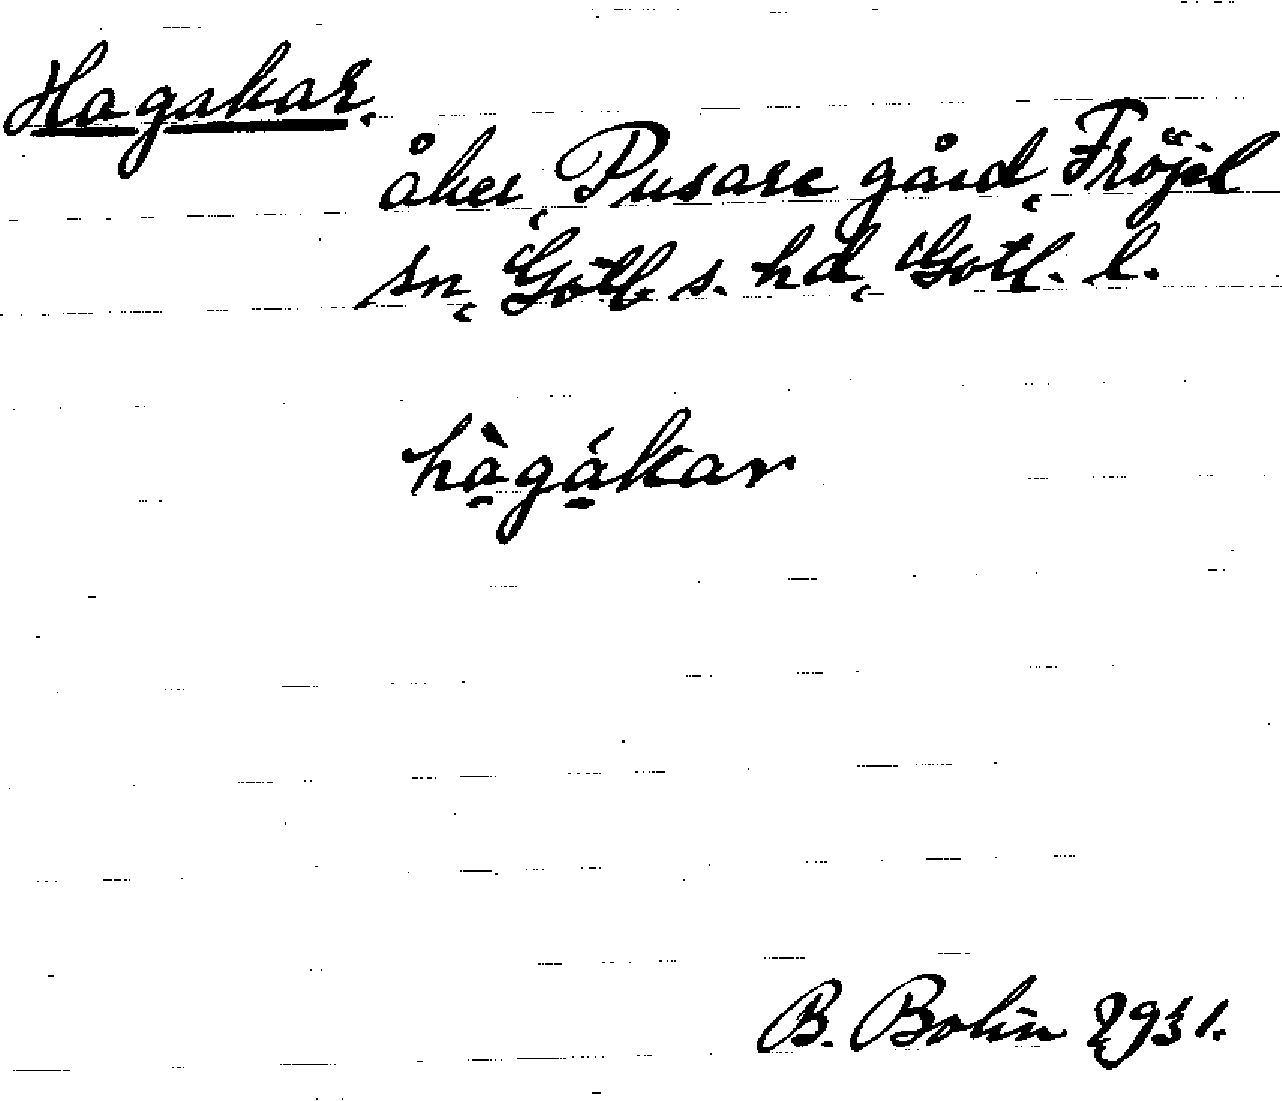 Hagakar,
åker, Pusare gård, Fröjel
sn, Gotl. s. hd, Gotl. l.
hàgákar
B. Bolin 1931.